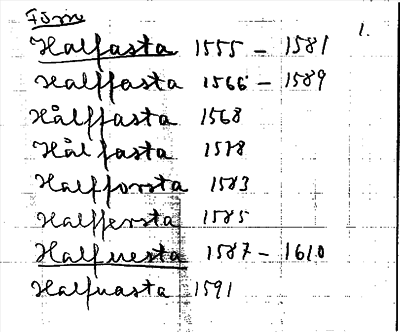 Form 1.
Halfasta 1555 – 1581
Halffasta 1566 – 1589
Hålffasta 1568
Hål fasta 1578
Halfforsta 1583
Halffersta 1585
Halfvesta 1587 – 1610
Halfvasta 1591